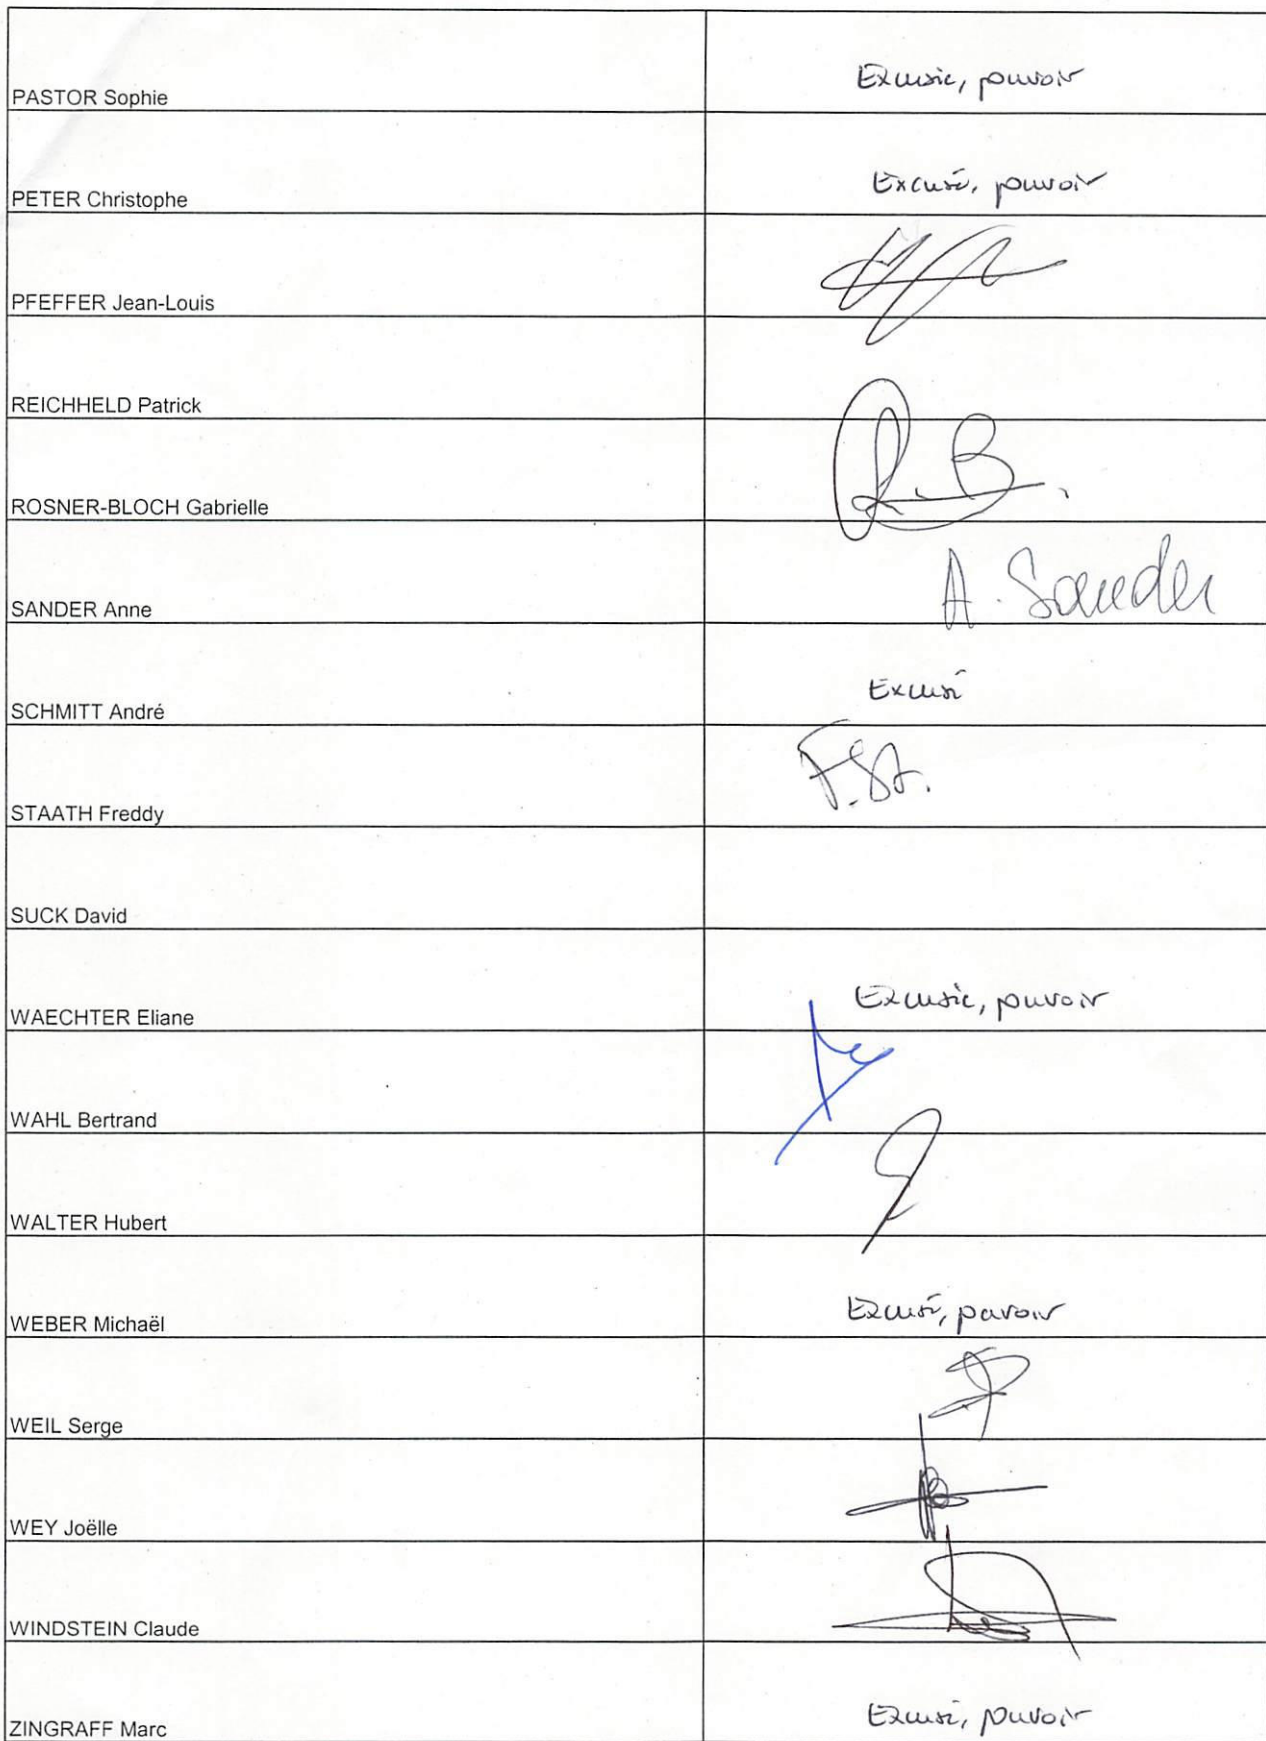 PASTOR Sophie
Excusée, pouvoir
PETER Christophe
Excusé, pouvoir
PFEFFER Jean-Louis
REICHHELD Patrick
ROSNER-BLOCH Gabrielle
R.B.
SANDER Anne
A. Sander
SCHMITT André
Excusé
STAATH Freddy
F.St.
SUCK David
WAECHTER Eliane
Excusée, pouvoir
WAHL Bertrand
WALTER Hubert
WEBER Michaël
Excusé, pouvoir
WEIL Serge
WEY Joëlle
WINDSTEIN Claude
ZINGRAFF Marc
Excusé, pouvoir